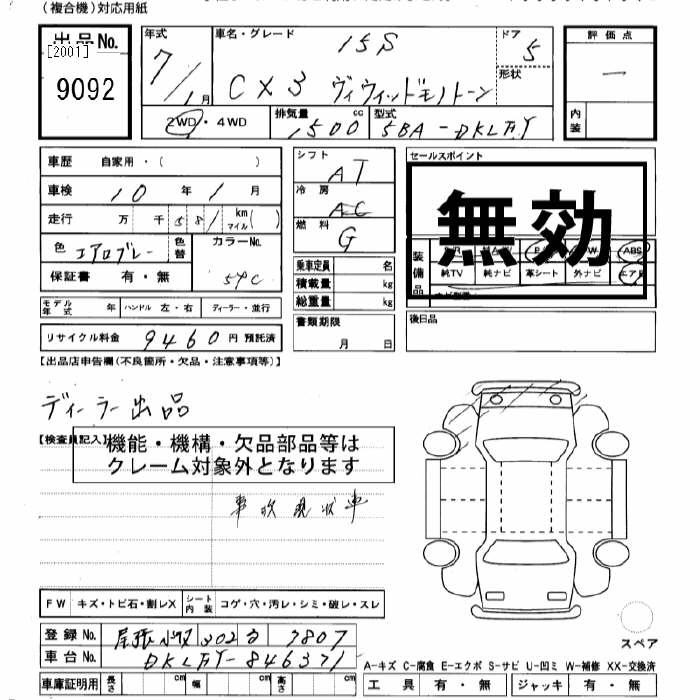 （複合機）対応用紙
出品No.
[2001]
9092
年式
7/1月
車名・グレード
15S
CX3 ヴィヴィッドモノトーン
ドア
5
形状
2WD・4WD
排気量 1500 cc
型式 5BA-DKLFY
評価点
内装
車歴 自家用・（ ）
車検 10年1月
走行 万 千 581 km マイル( )
色 エアログレー
色替
カラーNo. 59C
保証書 有・無
モデル年式 年 ハンドル 左・右 ディーラー・並行
リサイクル料金 9460円 預託済
シフト AT
冷房 AC
燃料 G
乗車定員 名
積載量 kg
総重量 kg
書類期限
月 日
セールスポイント
無効
装備品
ABS
純TV 純ナビ 革シート 外ナビ エアB
後日品
【出品店申告欄(不良箇所・欠品・注意事項等)】
ディーラー出品
【検査員記入】
機能・機構・欠品部品等は
クレーム対象外となります
事故現状車
FW キズ・トビ石・割レX
シート内装 コゲ・穴・汚レ・シミ・破レ・スレ
登録No. 尾張小牧 302 7807
車台No. DKLFY-846371
車庫証明用 長さ cm 幅 cm 高さ cm
スペア
A-キズ C-腐食 E-エクボ S-サビ U-凹ミ W-補修 XX-交換済
工具 有・無 ジャッキ 有・無